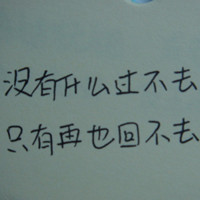 没有什么过不去
只有再也回不去